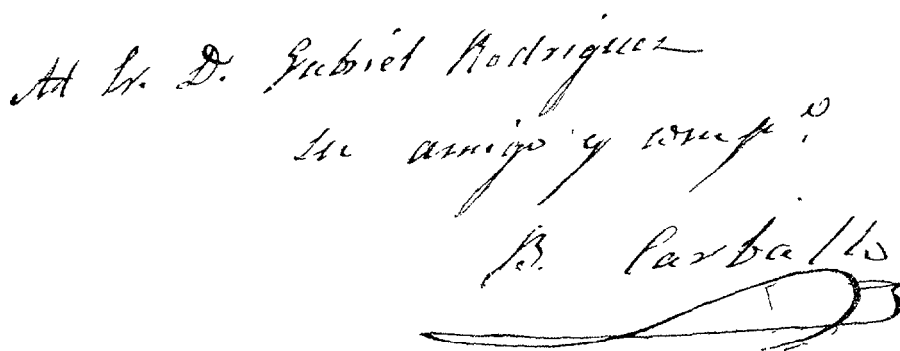 Al Sr. D. Gabriel Rodriguez
su amigo y comp.º
B. Carballo